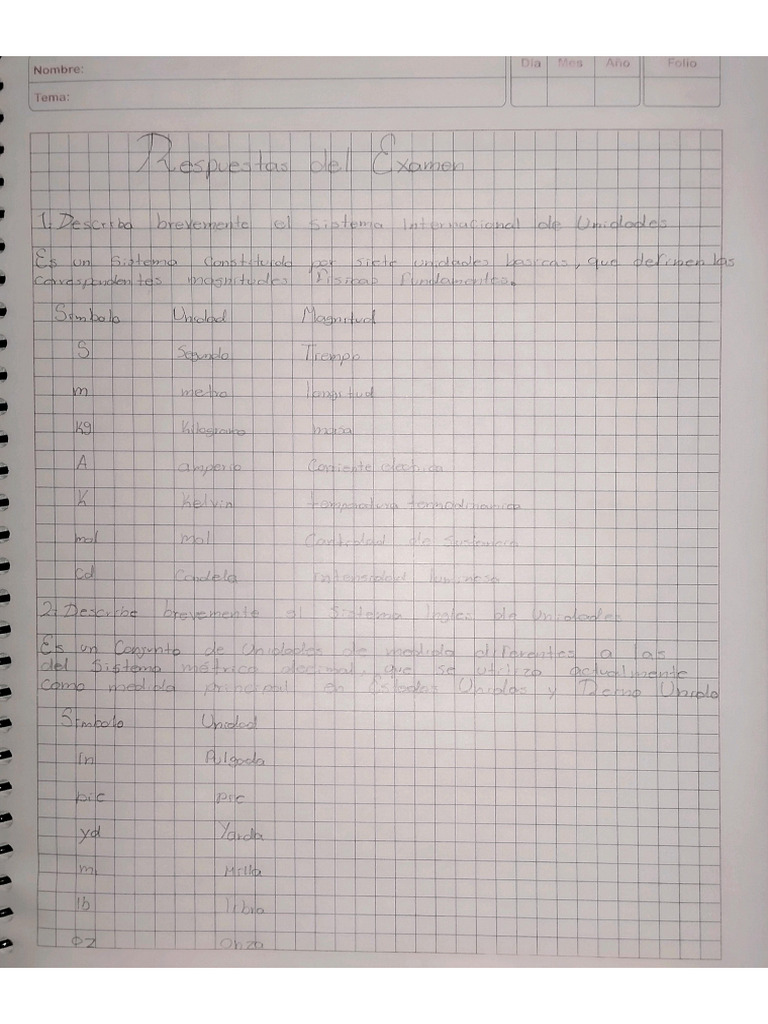 Nombre:
Día Mes Año Folio
Tema:
Respuestas del Examen
1: Describa brevemente el Sistema Internacional de Unidades
Es un Sistema Constituido por siete unidades basicas, que definen las
correspondientes magnitudes Fisicas Fundamentes.
Simbolo Unidad Magnitud
S Segundo Tiempo
m metro longitud
Kg Kilogramo masa
A amperio Corriente electrica
K Kelvin temperatura termodinamica
mol mol Cantidad de Sustancia
Cd Candela intensidad luminosa
2: Describe brevemente el Sistema Ingles de Unidades
Es un Conjunto de Unidades de medida diferentes a las
del Sistema métrico decimal, que se utiliza actualmente
como medida principal en Estados Unidos y Reino Unido
Simbolo Unidad
in Pulgada
pie pie
yd Yarda
mi Milla
lb libra
oz Onza